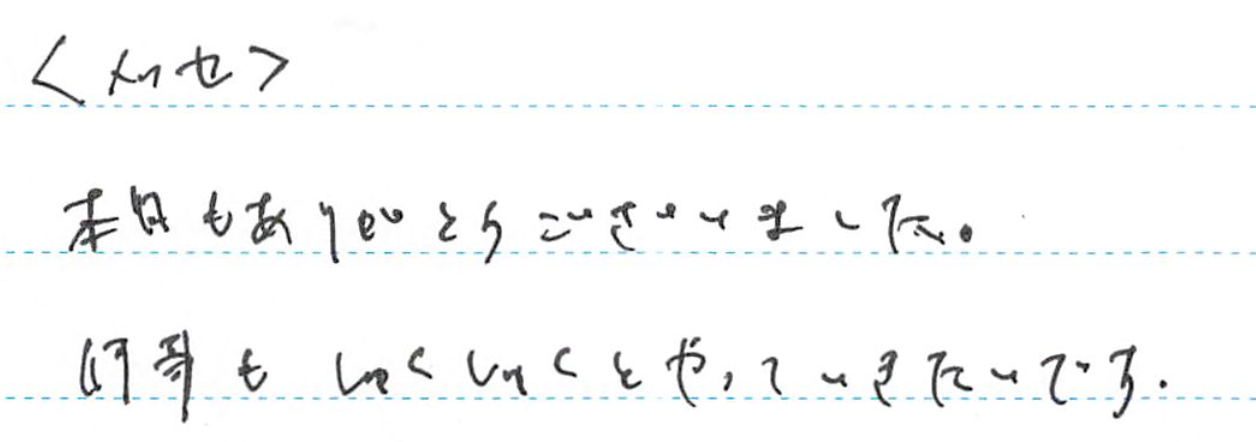 <メッセ>
本日もありがとうございました。
何事も しゅくしゅくとやっていきたいです.